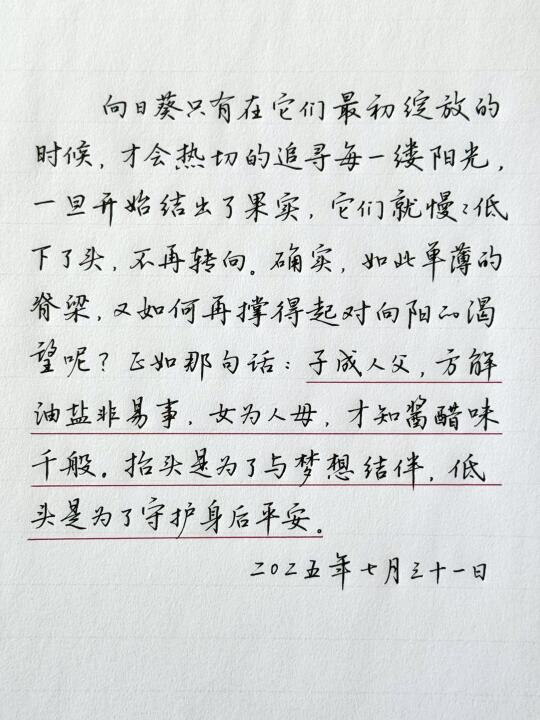 向日葵只有在它们最初绽放的
时候，才会热切的追寻每一缕阳光，
一旦开始结出了果实，它们就慢々低
下了头，不再转向。确实，如此单薄的
脊梁，又如何再撑得起对向阳的渴
望呢？正如那句话：子成人父，方解
油盐非易事，女为人母，才知酱醋味
千般。抬头是为了与梦想结伴，低
头是为了守护身后平安。
二〇二五年七月三十一日